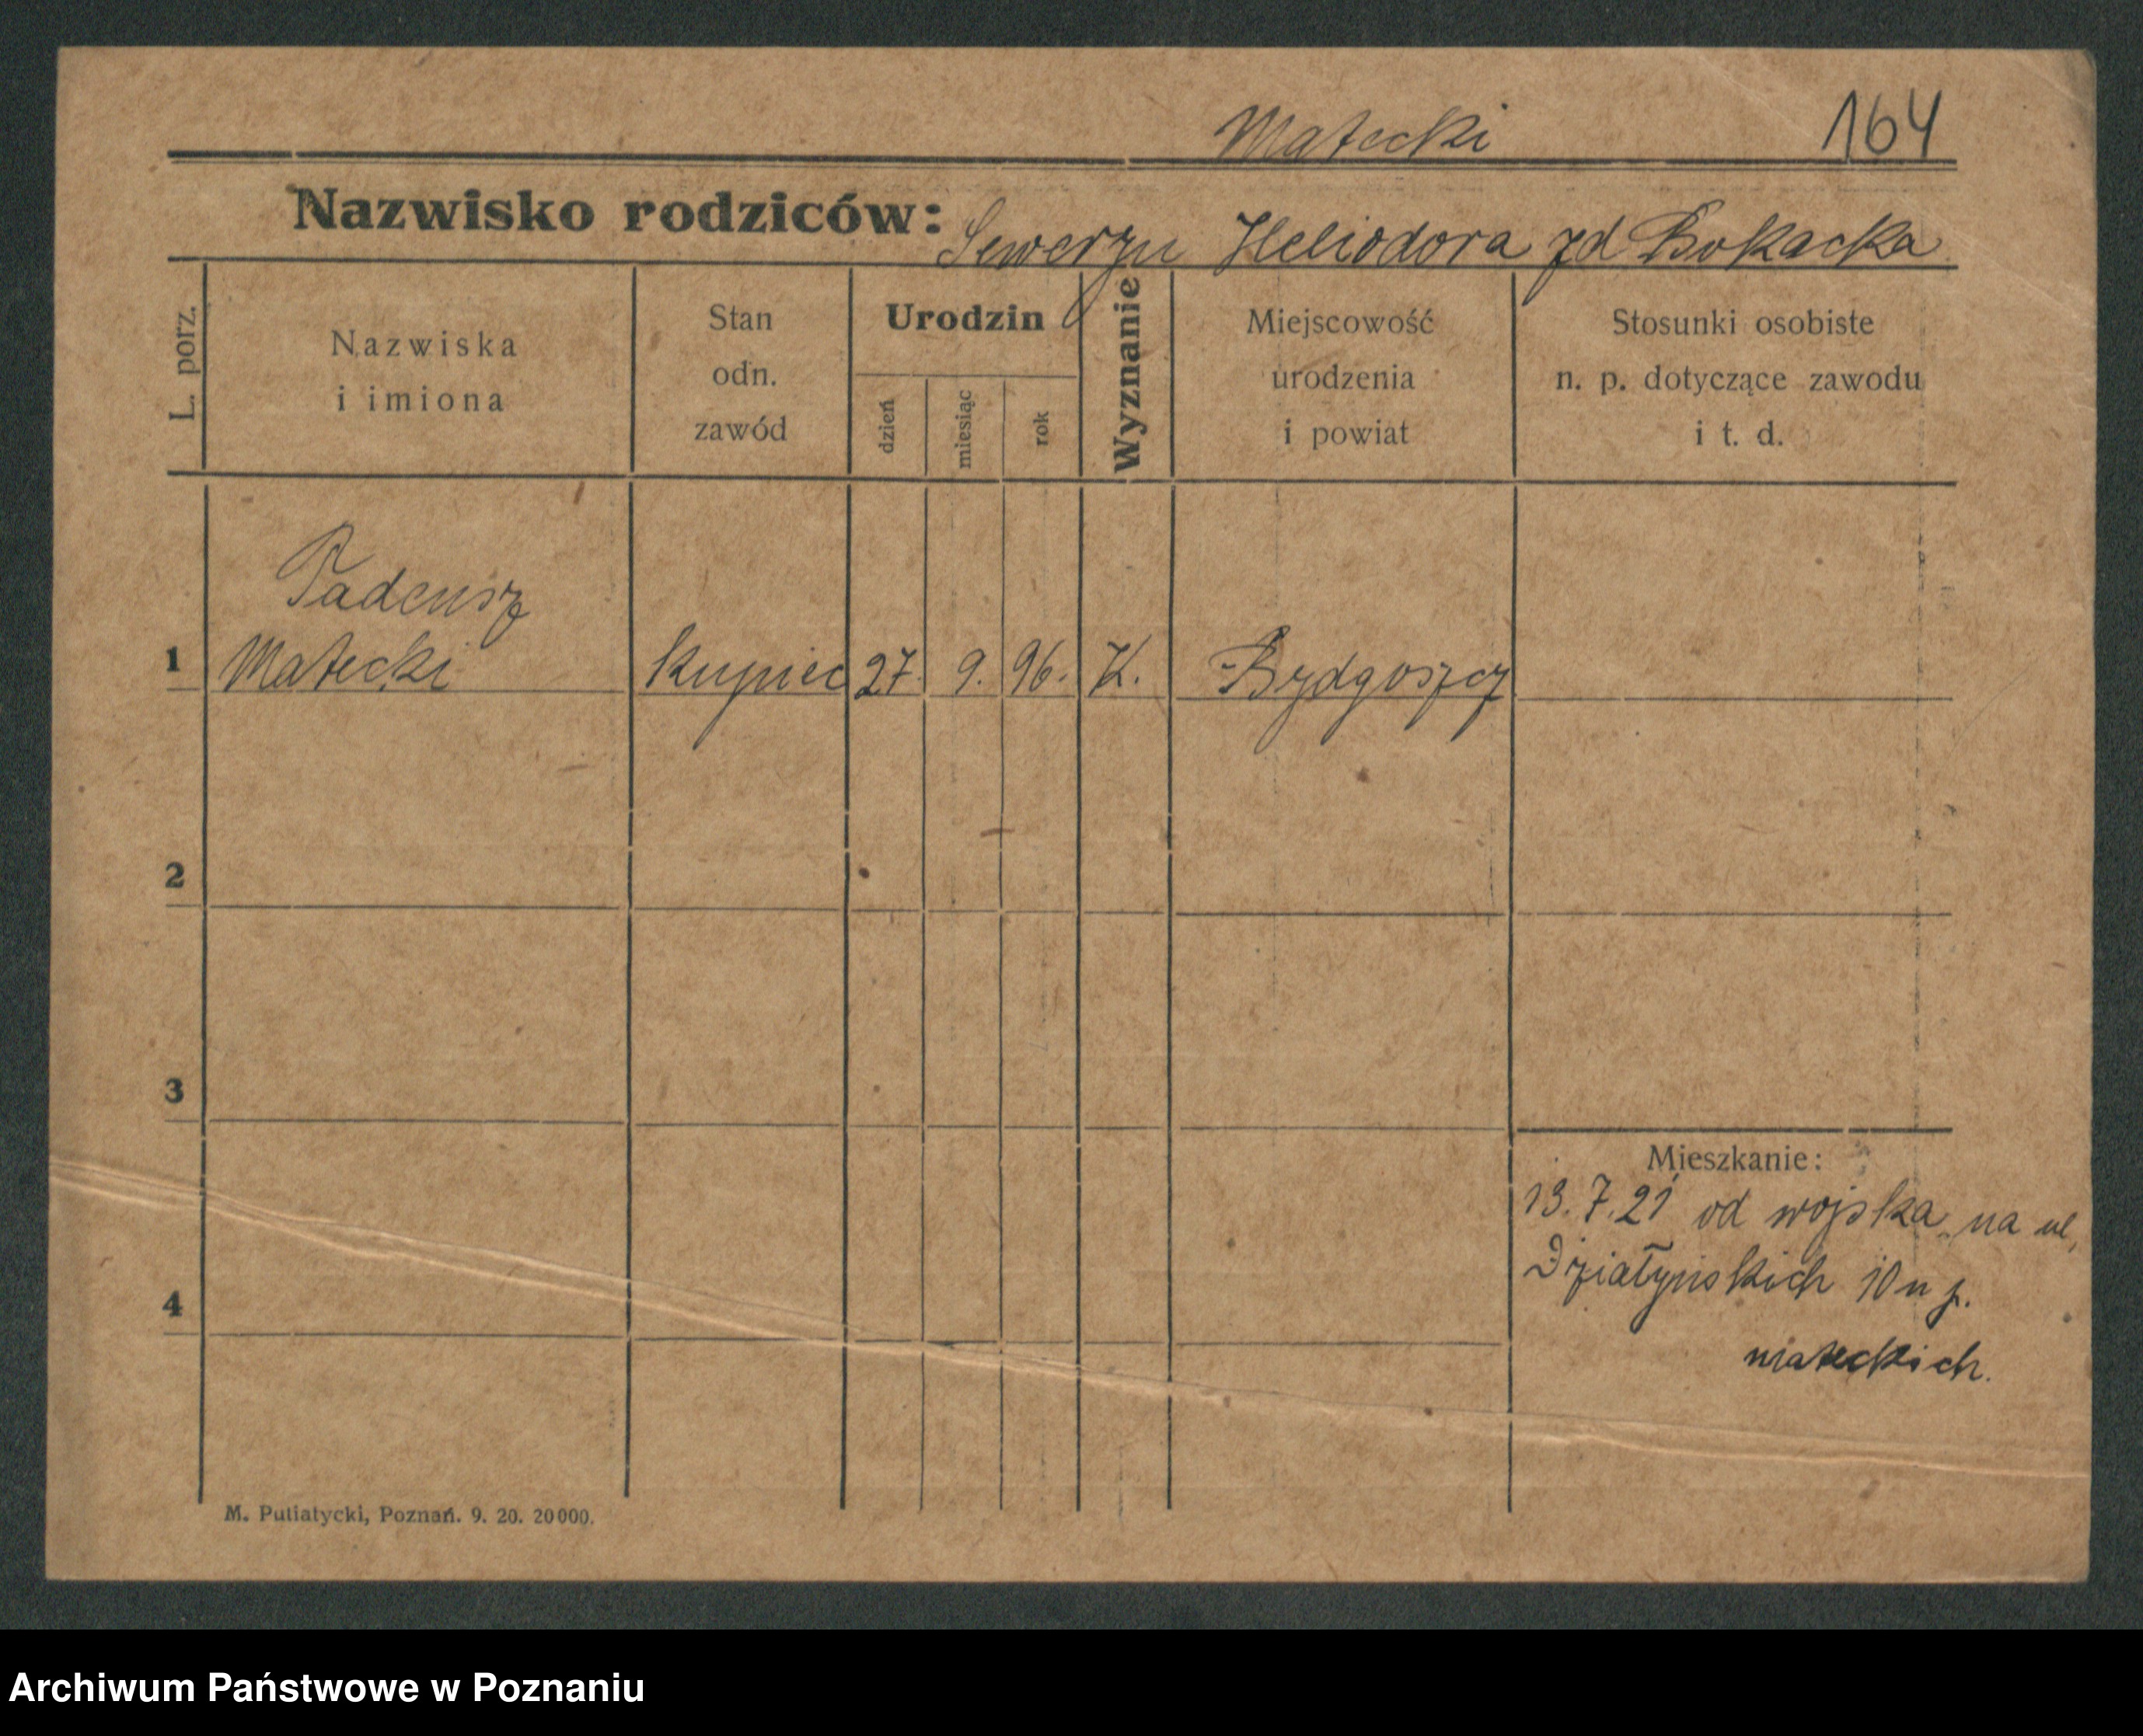 Matecki 164
Nazwisko rodziców: Seweryn Heliodora zd Bokacka
L. porz.
Nazwiska
i imiona
Stan
odn.
zawód
Urodzin
dzień
miesiąc
rok
Wyznanie
Miejscowość
urodzenia
i powiat
Stosunki osobiste
n. p. dotyczące zawodu
i t. d.
Tadeusz
1 Matecki kupiec 27. 9. 96. K. Bydgoszcz
2
3
Mieszkanie:
13.7.21 od wojska na ul,
Działyńskich 10 u p.
4
mateckich.
M. Putiatycki, Poznań. 9. 20. 20000.
Archiwum Państwowe w Poznaniu